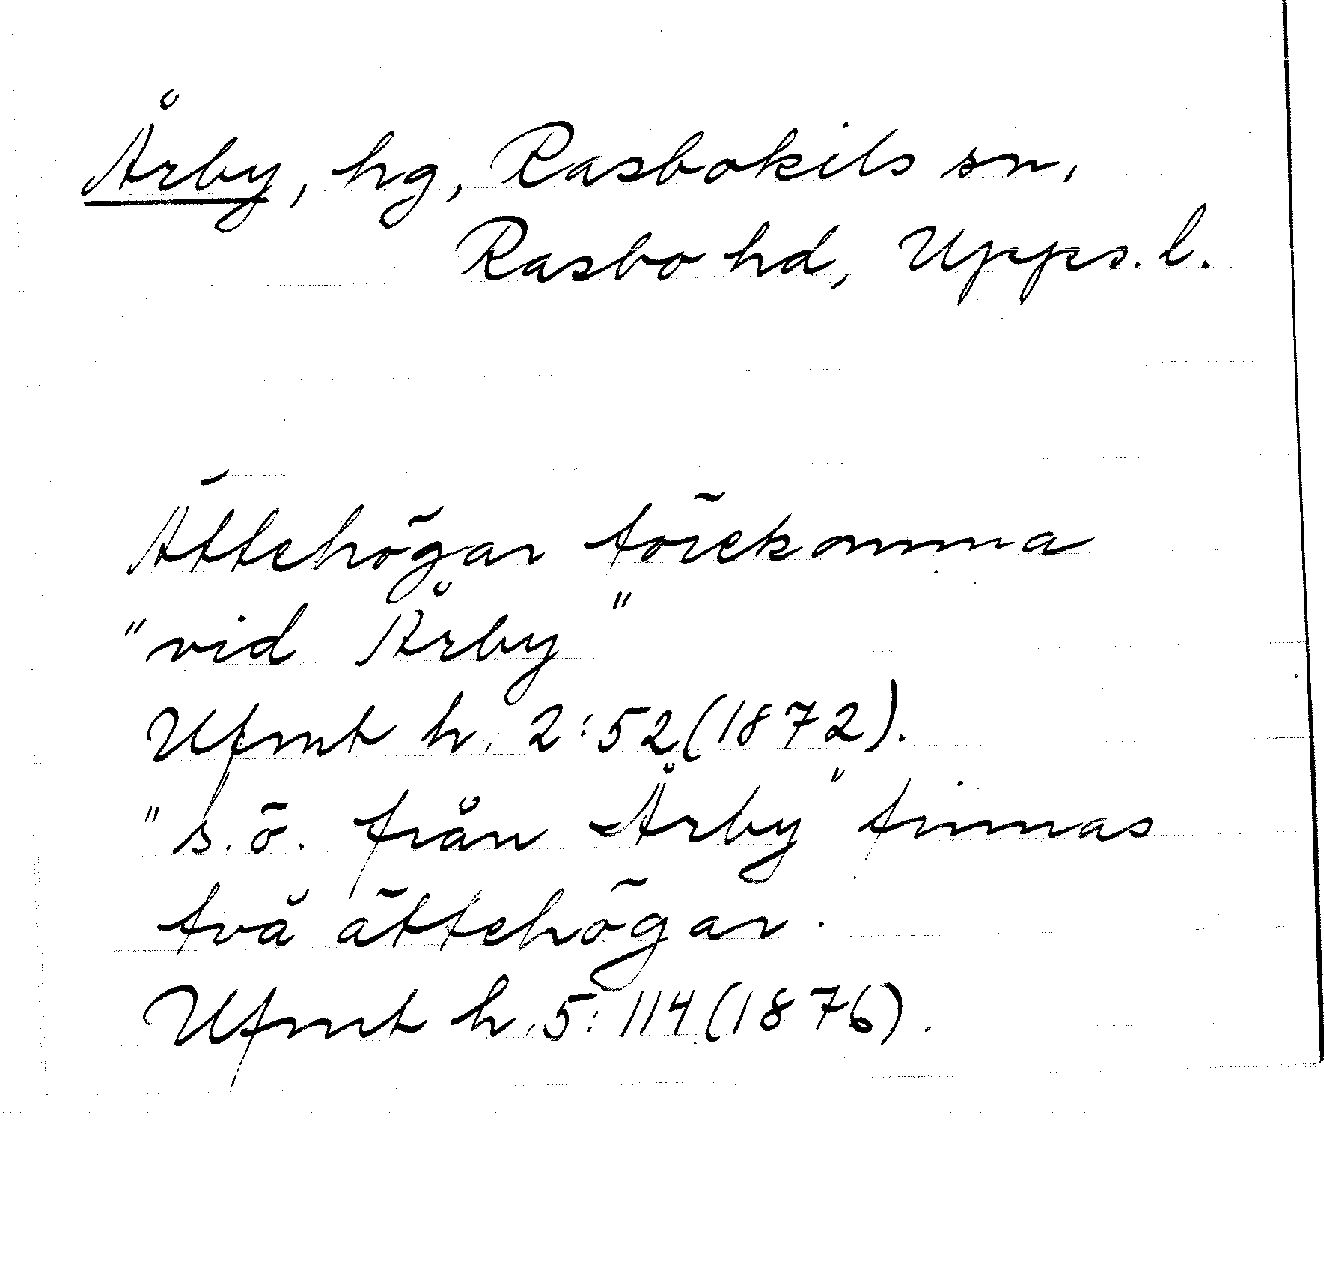 Årby, hg, Rasbokils sn,
Rasbo hd, Upps. l.
Ättehögar förekomma
"vid Årby"
Ufmt h. 2:52 (1872).
"s.ö. från Årby" finnas
två ättehögar.
Ufmt h. 5:114 (1876).